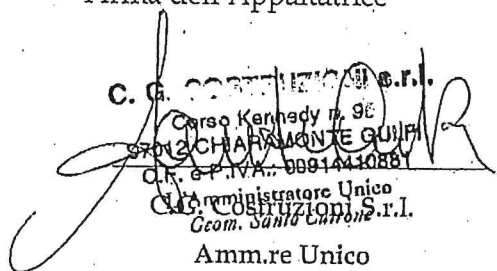 Firma dell'Appaltatrice
C. G. COSTRUZIONI s.r.l.
Corso Kennedy n. 95
97012 CHIARAMONTE GULFI
C.F. e P.IVA.: 00914410881
L'Amministratore Unico
C.G. Costruzioni S.r.l.
Geom.
Amm.re Unico